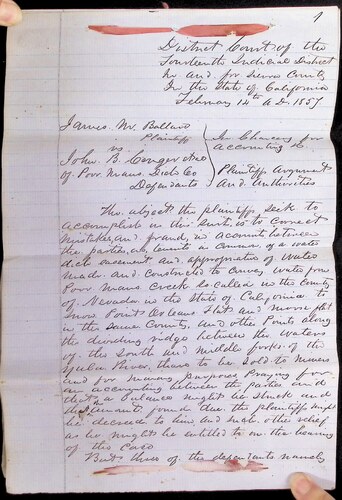 1
District Court of the
Fourteenth Judicial District
in and for Sierra County
In the State of California
February 14th A.D. 1857
James W. Ballard
Plaintiff
vs
John B. Conger
of Poor Mans Ditch Co
Defendants
In Chancery for
accounting &c
Plaintiffs Argument
And Authorities
The object the plaintiffs seek to
accomplish in this suit, is to correct
mistakes, and frauds, in accounts between
the parties, as tenants in common of a water
ditch easement and appropriation of Water
made and constructed to convey water from
Poor Mans Creek so called in the County
of Nevada in the State of California to
Snow Point Orleans Flat and Moores flat
in the same County, and other Points along
the dividing ridge between the waters
of the South and middle forks of the
Yuba River, there to be Sold to Miners
and for Mining purposes Praying for
an accounting between the parties and
that a balance might be struck and
the amount found due the plaintiffs might
be decreed to him and such other relief
as he might be entitled to on the hearing
of this Case
But three of the defendants namely